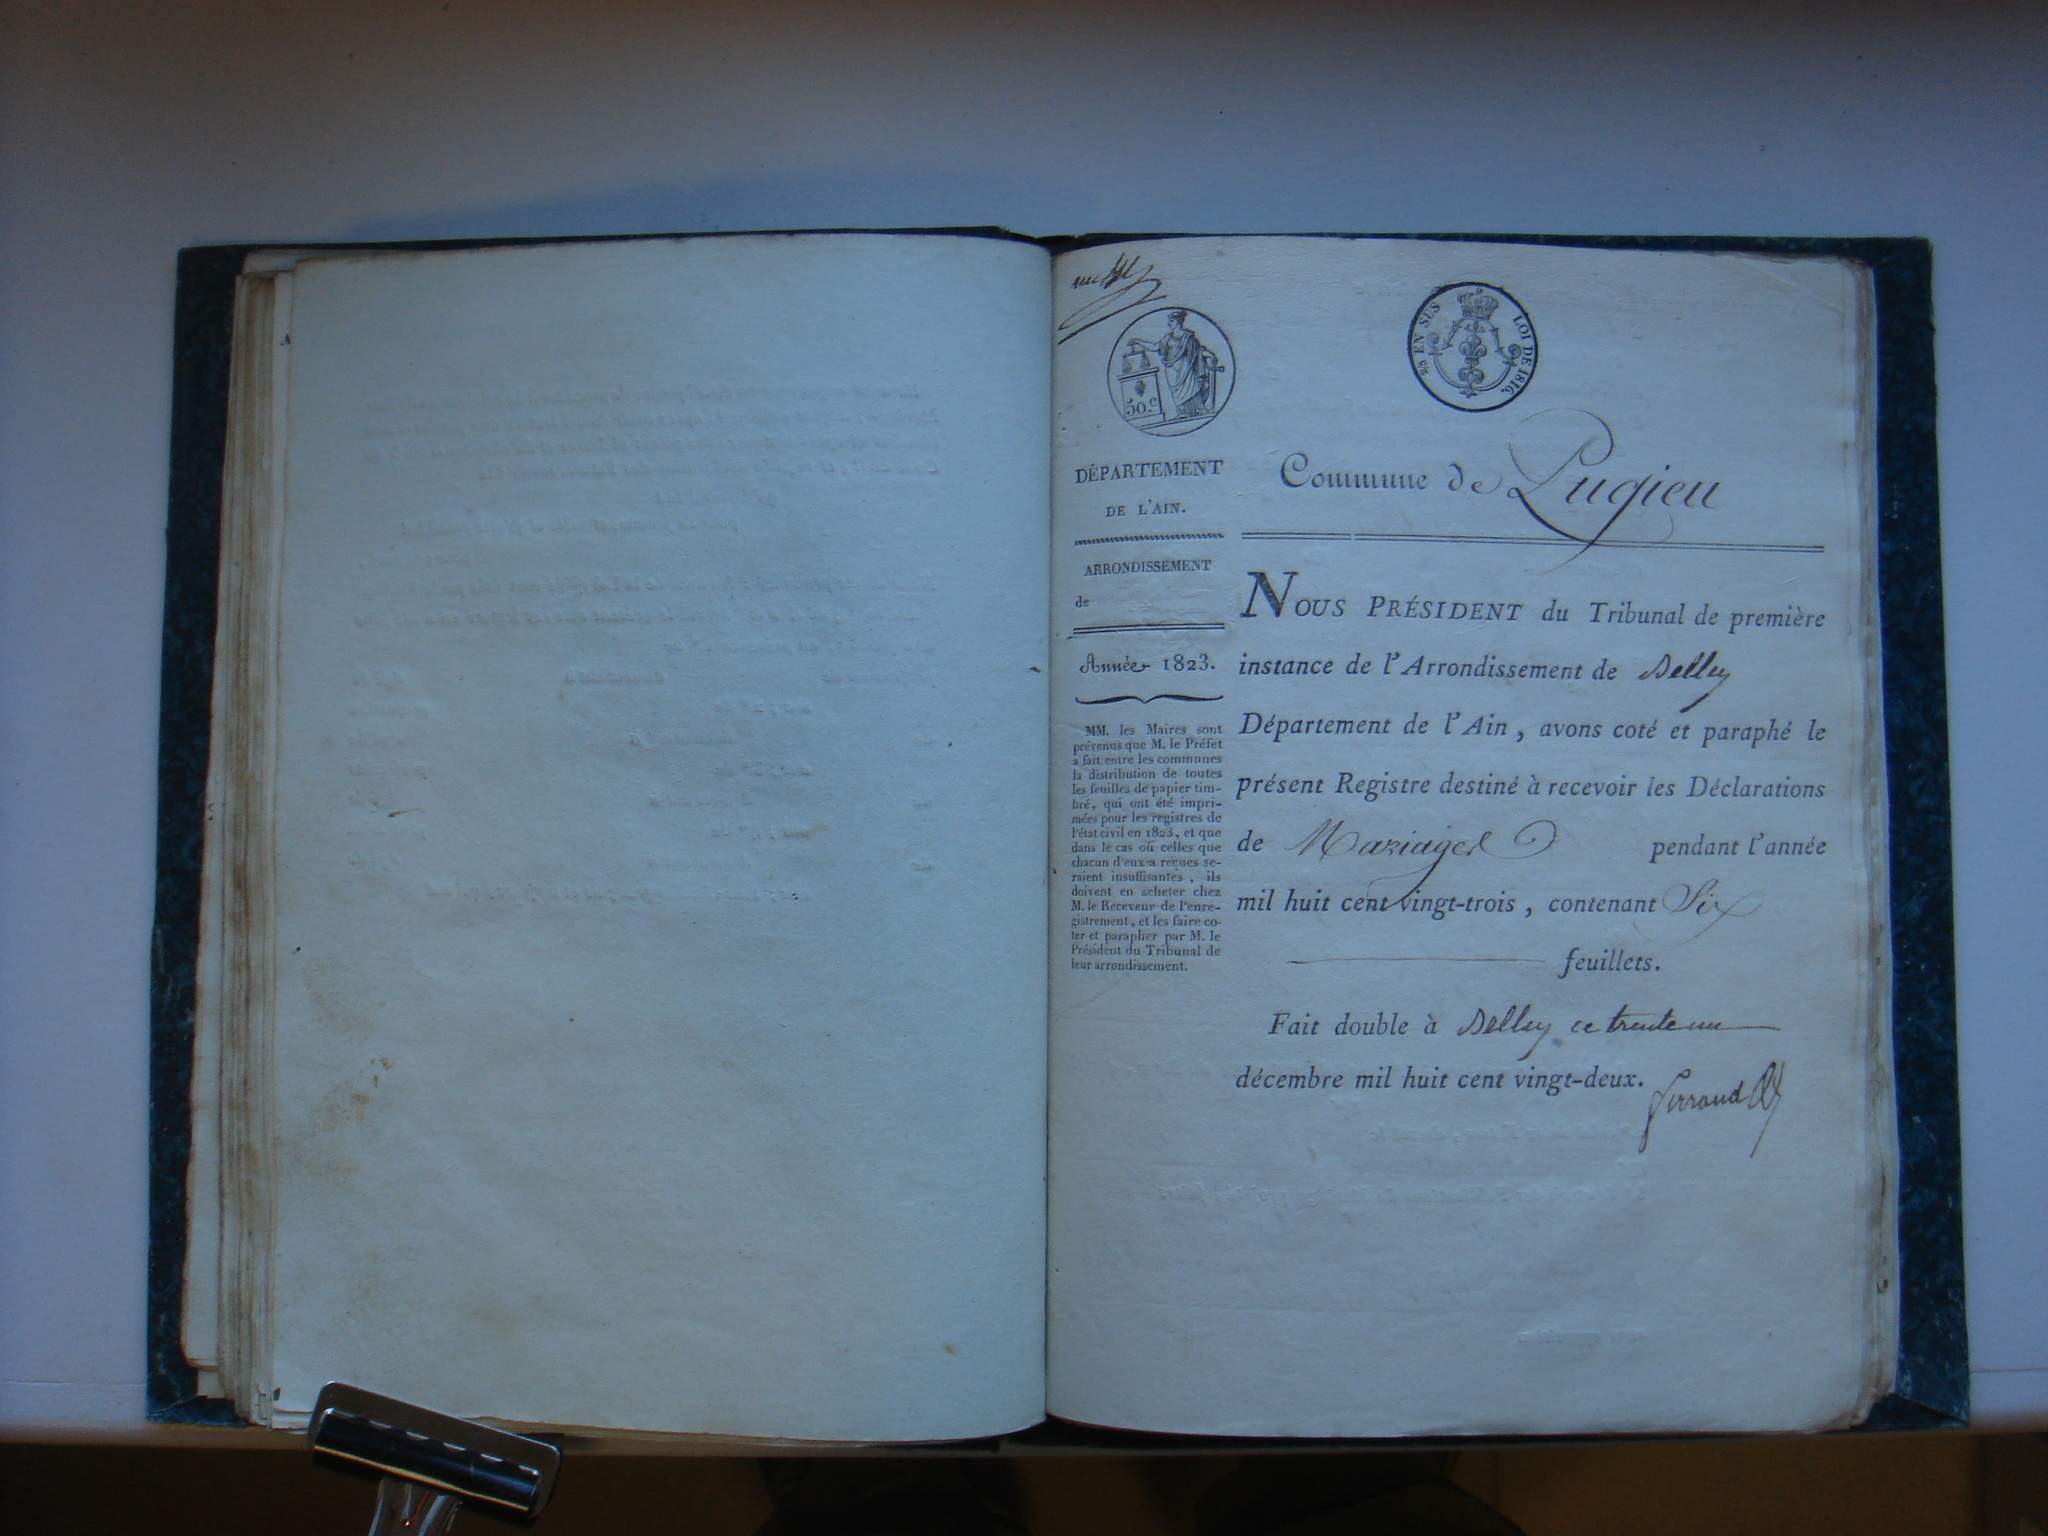 50.c
25 EN SUS LOI DE 1816.
DÉPARTEMENT
DE L'AIN.
ARRONDISSEMENT
de
Année 1823.
MM. les Maires sont
prévenus que M. le Préfet
a fait entre les communes
la distribution de toutes
les feuilles de papier tim-
bré, qui ont été impri-
mées pour les registres de
l'état civil en 1823, et que
dans le cas où celles que
chacun d'eux a reçues se-
raient insuffisantes, ils
doivent en acheter chez
M. le Receveur de l'enre-
gistrement, et les faire co-
ter et parapher par M. le
Président du Tribunal de
leur arrondissement.
Commune de Pugieu
NOUS PRÉSIDENT du Tribunal de première
instance de l'Arrondissement de Belley
Département de l'Ain, avons coté et paraphé le
présent Registre destiné à recevoir les Déclarations
de Mariages pendant l'année
mil huit cent vingt-trois, contenant Six
feuillets.
Fait double à Belley ce trente un
décembre mil huit cent vingt-deux.